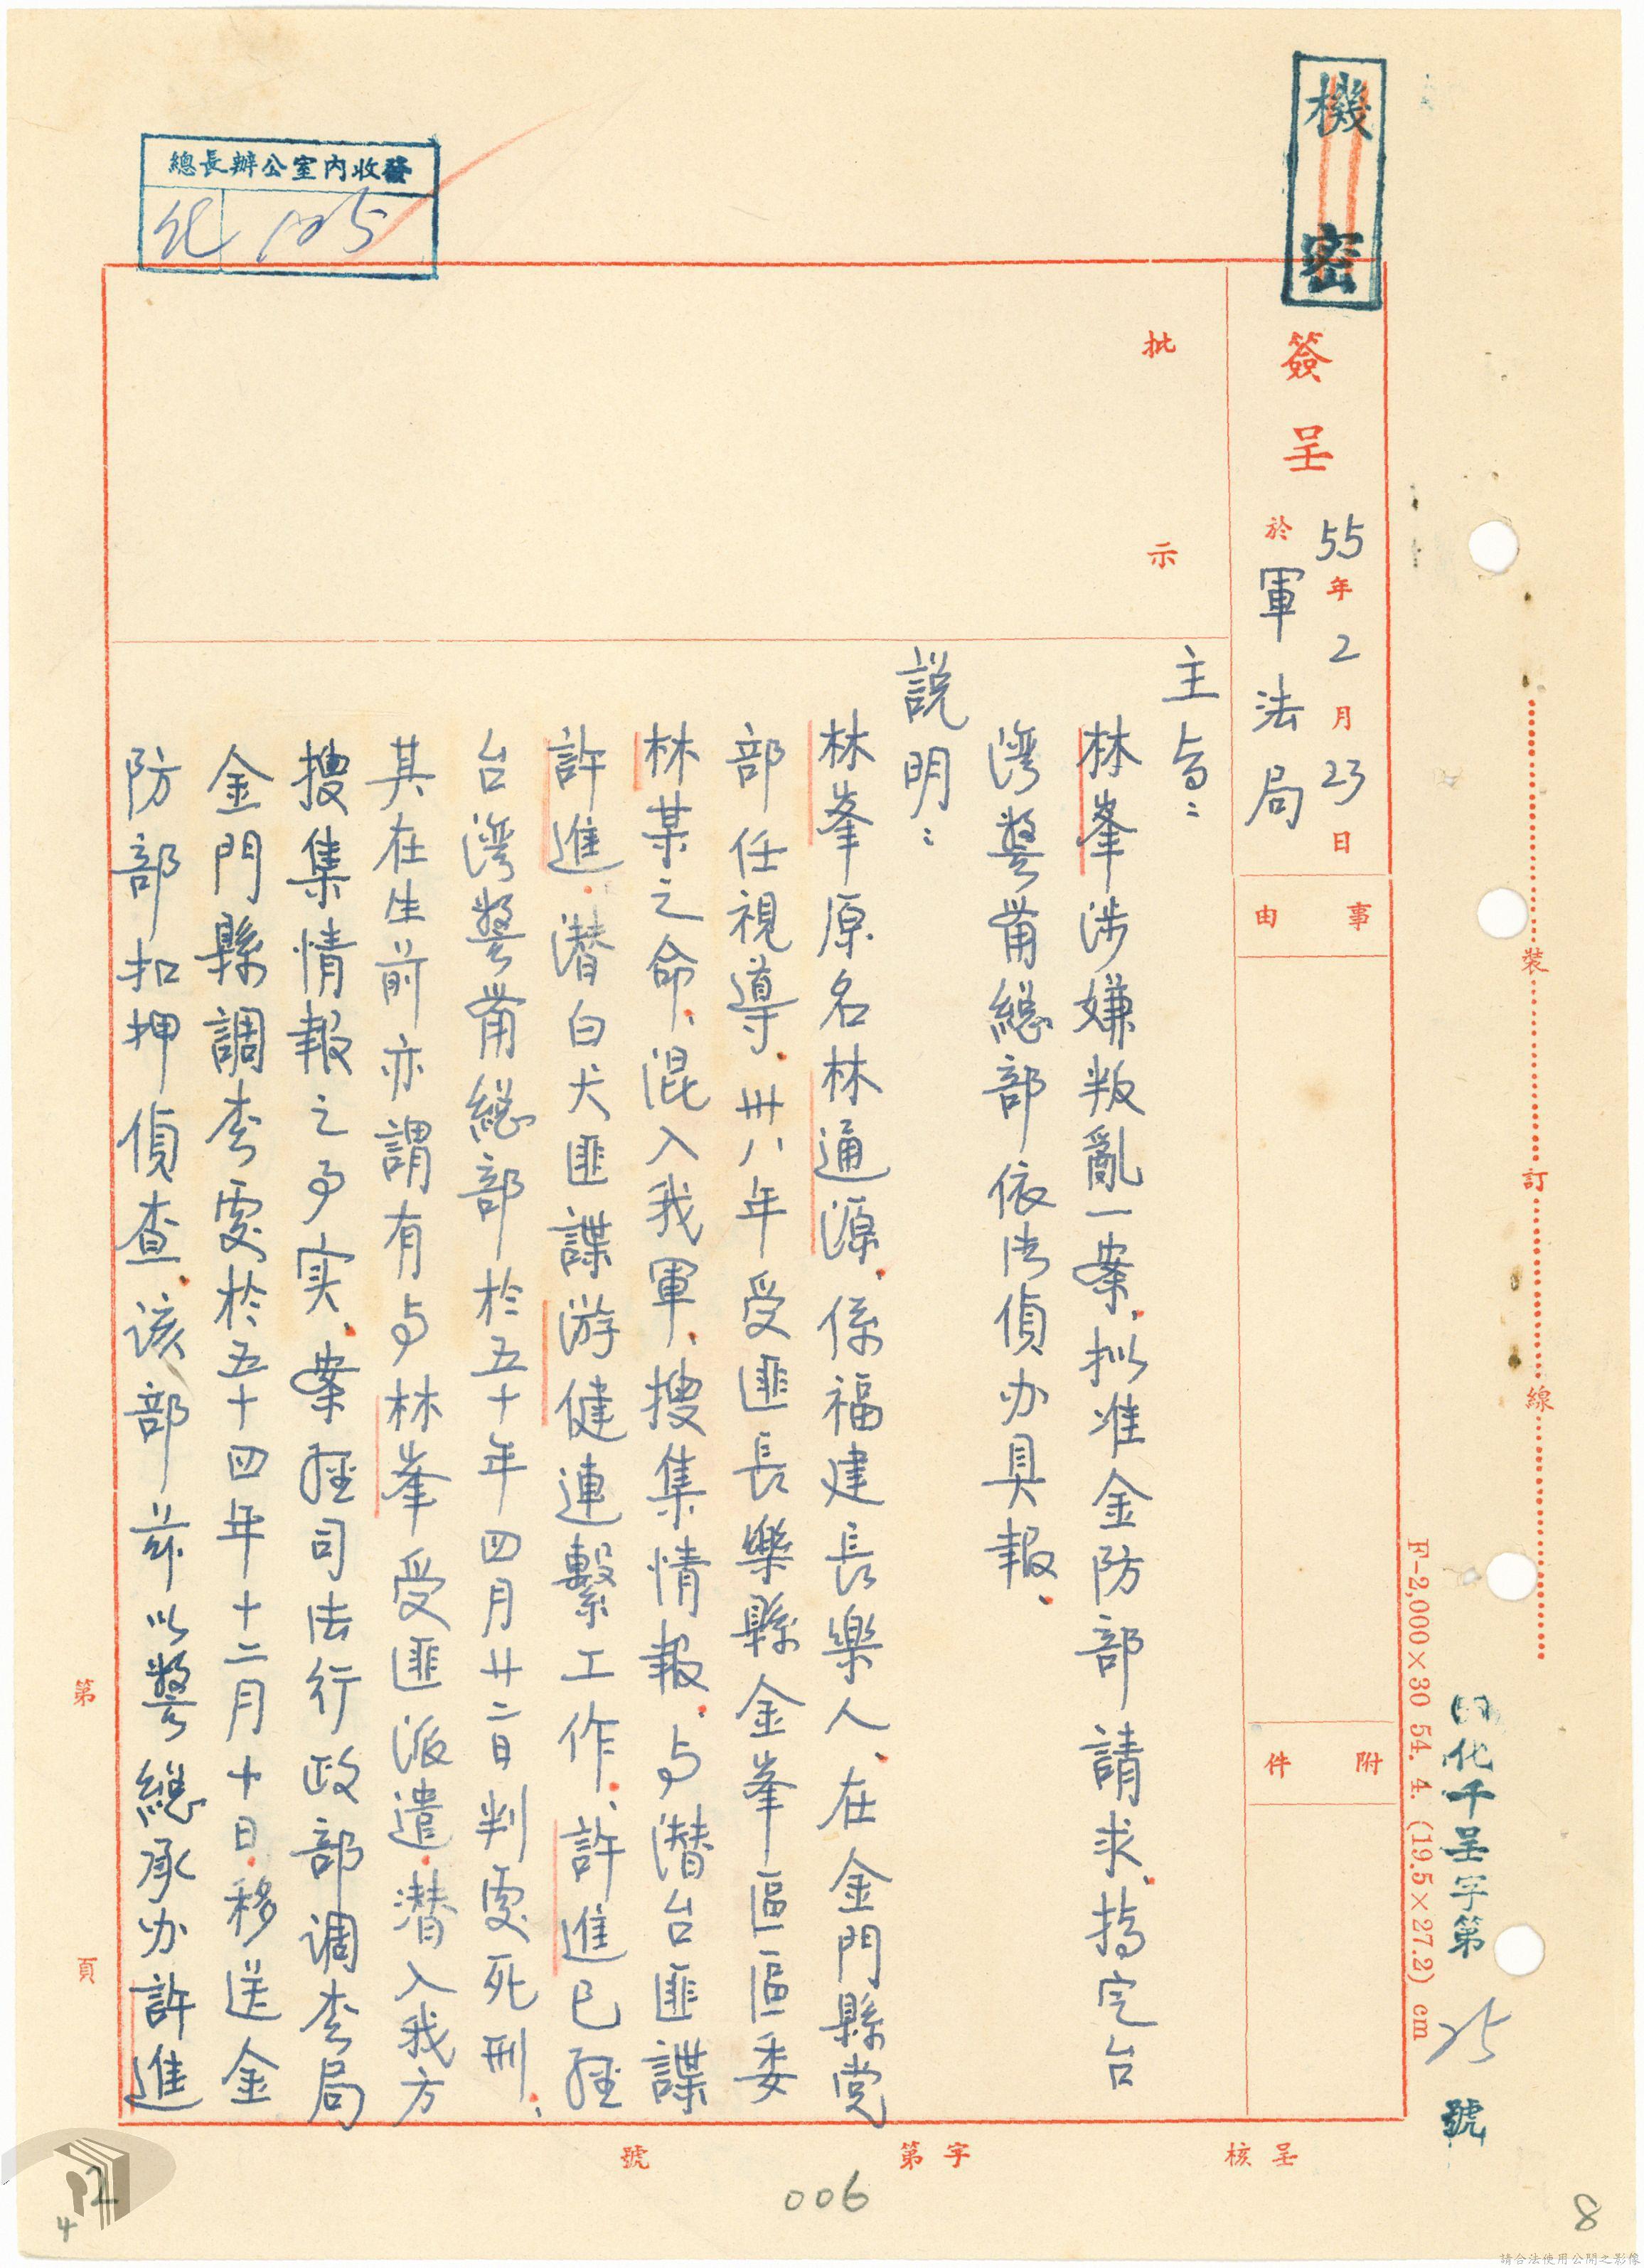 機密
總長辦公室內收發
化 125
簽呈
55年2月23日
於軍法局
批示
事由
附件
主旨：
林峯涉嫌叛亂一案、拟准金防部請求、移定台
湾警备總部依法偵办具報、
說明：
林峯原名林通源、係福建長樂人、在金門縣党
部任視導、卅八年受匪長樂縣金峯區區委
林某之命、混入我軍、搜集情報、与潛台匪諜
許進、潛白犬匪諜游健連繫工作、許進已經
台湾警备總部於五十年四月廿二日判處死刑、
其在生前亦謂有与林峯受匪派遣、潛入我方
搜集情報之事实、案經司法行政部調查局
金門縣調查處於五十四年十二月十日、移送金
防部扣押偵查、該部茲以警總承办許進
裝訂線
F-2,000×30 54. 4. (19.5×27.2) cm
化千呈字第25號
第 頁
呈核 字第 號
006
8
2
4
請合法使用公開之影像